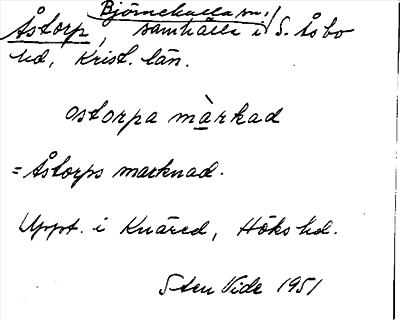 Björnekulla sn.
Åstorp, samhälle i S. Åsbo
hd, Krist. län.
ostorpa màrkad
= Åstorps marknad.
Uppt. i Knäred, Höks hd.
Sten Vide 1951